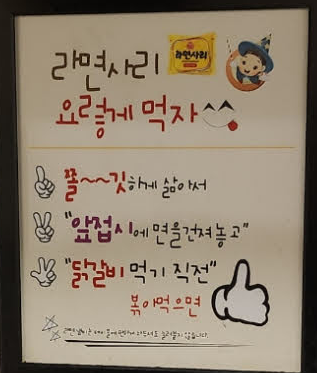 라면사리
라면사리
요렇게 먹자
쫄~~깃하게 삶아서
"앞접시에 면을 건져놓고"
"닭갈비 먹기 직전"
볶아먹으면